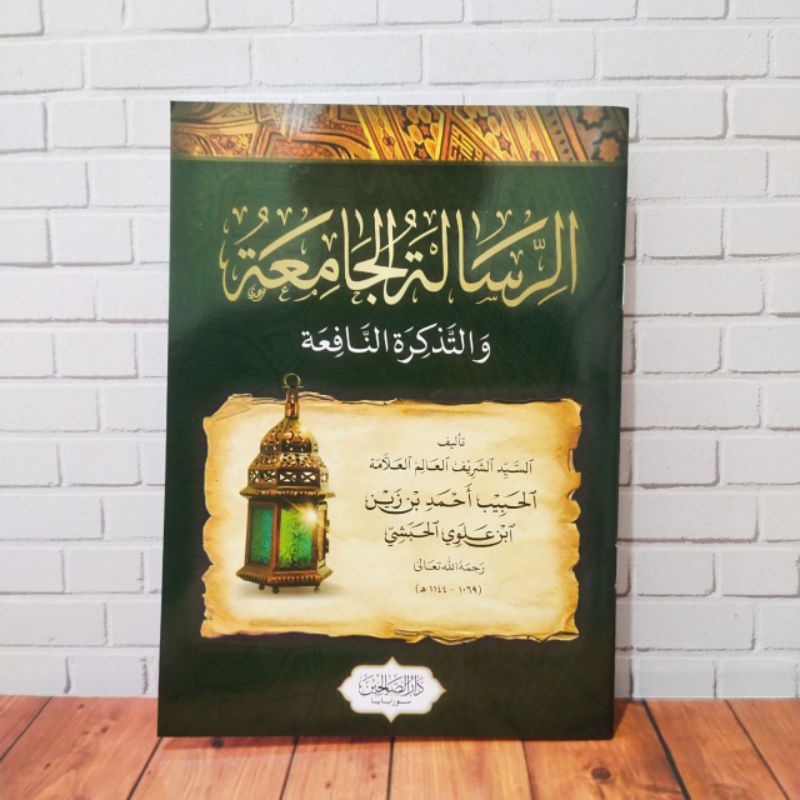 الرِّسَالَةُ الجَامِعَةُ
وَالتَّذْكِرَة النَّافِعَة
تأليف
السَّيِّد الشَّرِيف العَالِم العَلَّامَة
الحَبِيْب أَحْمَد بْن زَيْن
ابْن عَلَوِي الحَبَشِيّ
رَحِمَهُ اللّٰه تَعَالَىٰ
(١٠٦٩ - ١١٤٤ هـ)
دَارُ الصَّالِحِيْن
سورابايا